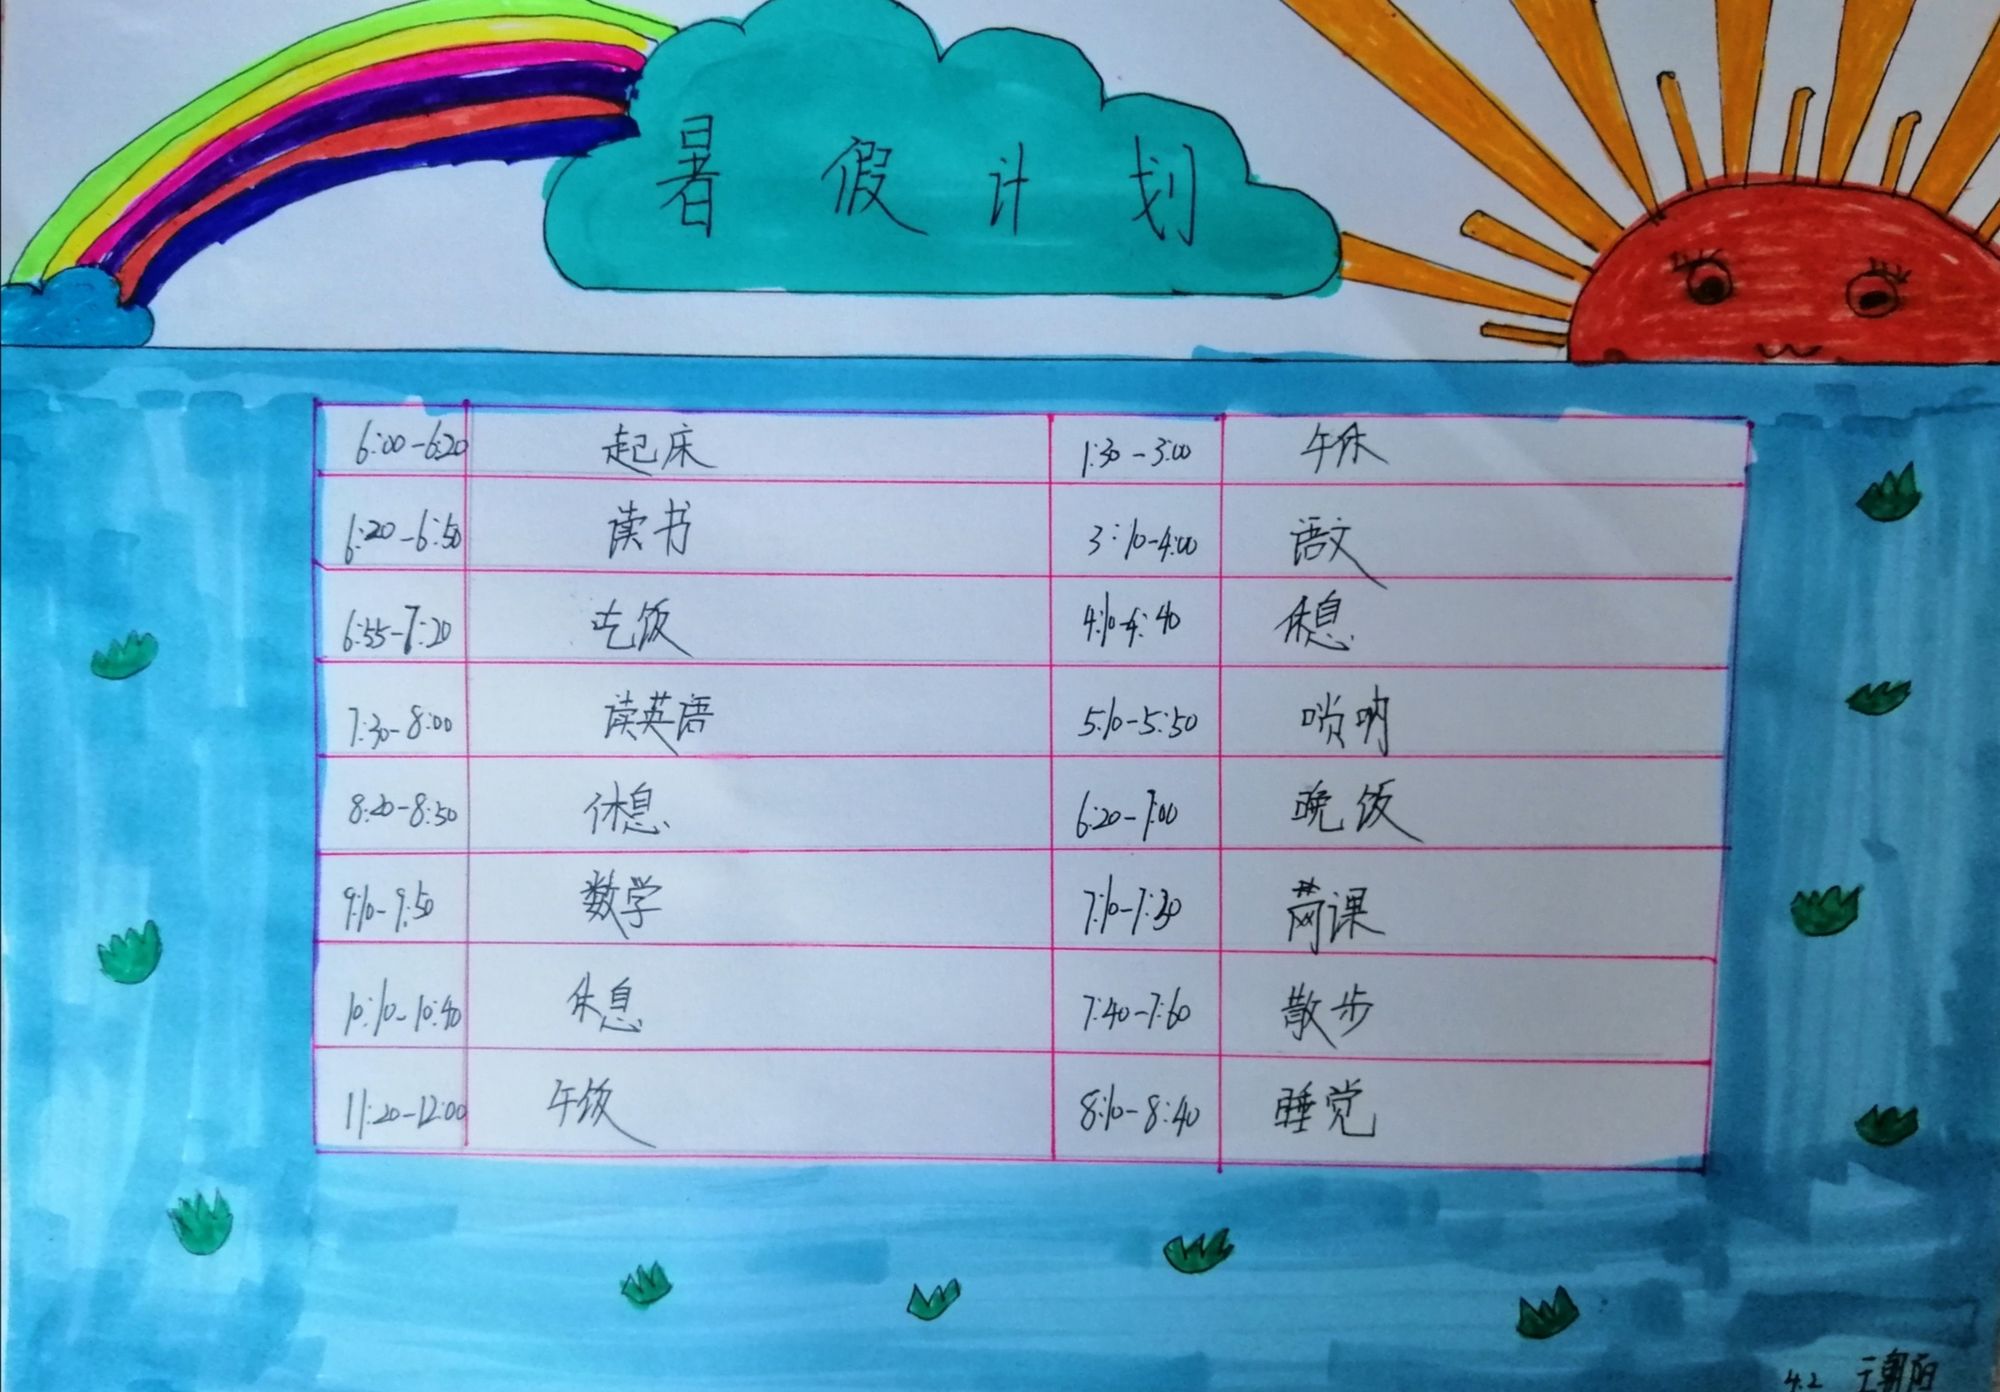 暑假计划
6:00-6:20 起床 1:30-3:00 午休
6:20-6:50 读书 3:10-4:00 语文
6:55-7:20 吃饭 4:10-4:40 休息
7:30-8:00 读英语 5:10-5:50 唢呐
8:20-8:50 休息 6:20-7:00 晚饭
9:10-9:50 数学 7:10-7:30 网课
10:10-10:40 休息 7:40-7:60 散步
11:20-12:00 午饭 8:10-8:40 睡觉
4.2